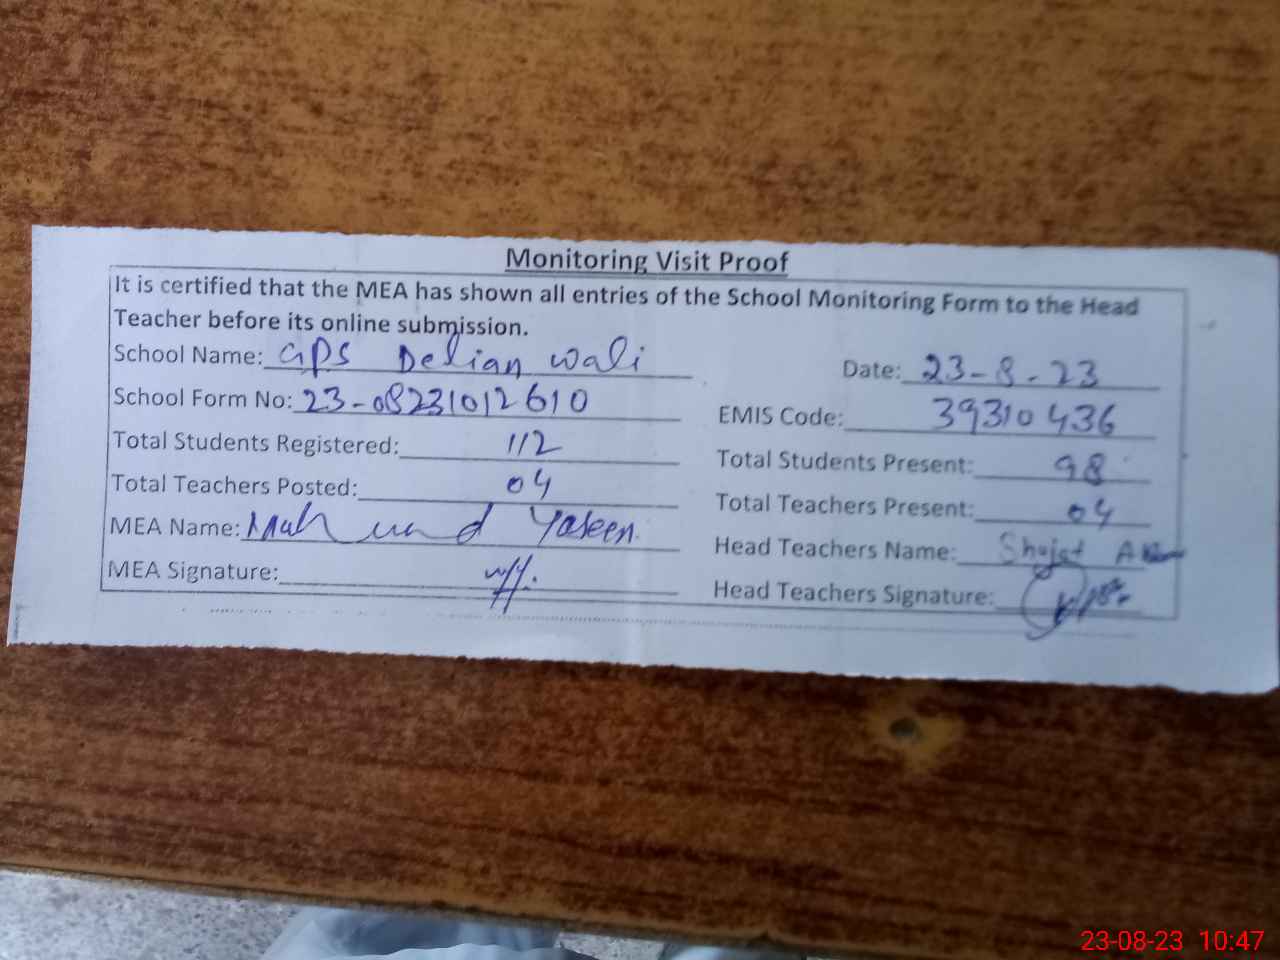 Monitoring Visit Proof
It is certified that the MEA has shown all entries of the School Monitoring Form to the Head
Teacher before its online submission.
School Name: GPS Delian Wali
Date: 23-8-23
School Form No: 23-08231012610
EMIS Code: 39310436
Total Students Registered: 112
Total Students Present: 98
Total Teachers Posted: 04
Total Teachers Present: 04
MEA Name: Yaseen
Head Teachers Name: Shujat
MEA Signature:
Head Teachers Signature:
23-08-23 10:47